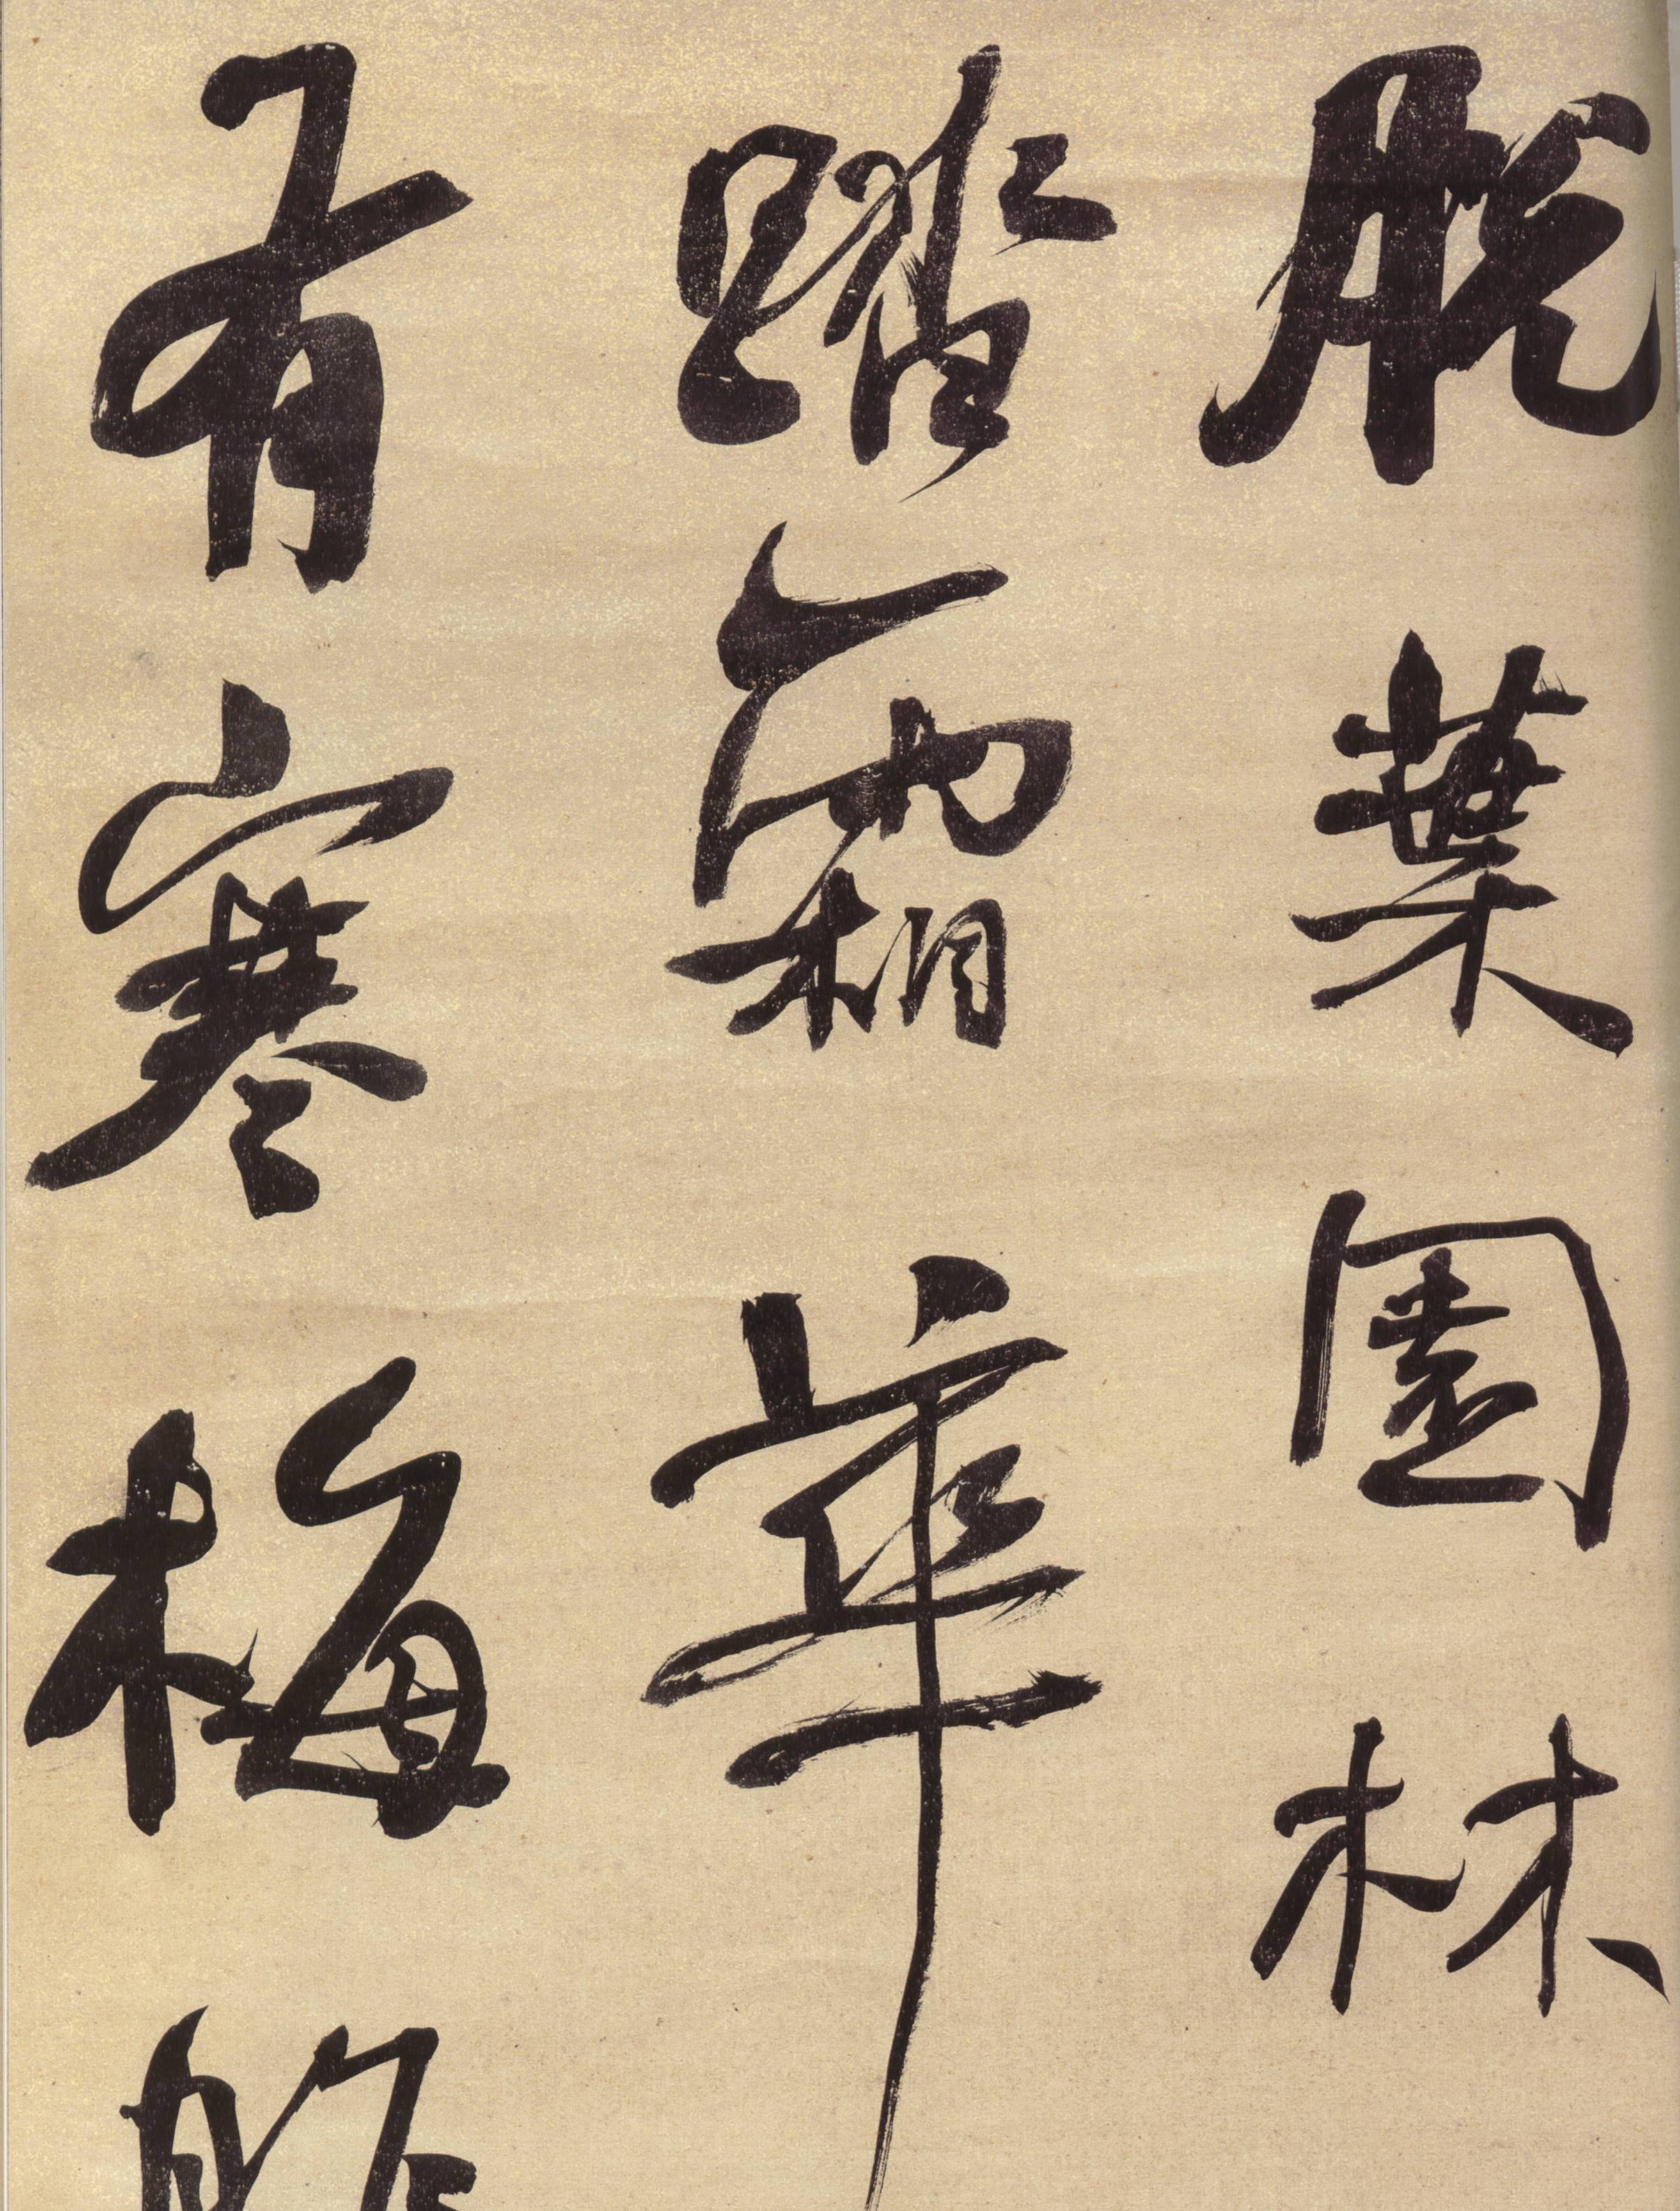 脫葉園林
踏霜華
有寒梅